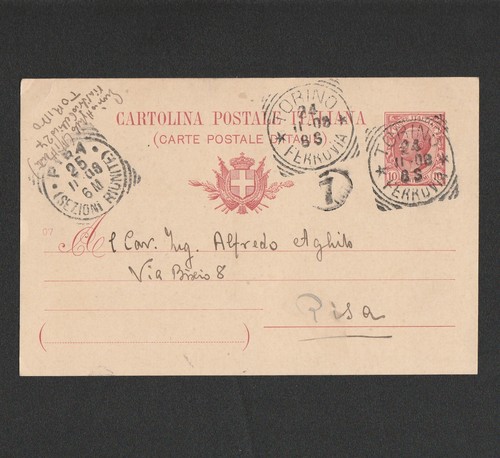 TORINO
CARTOLINA POSTALE ITALIANA
(CARTE POSTALE D'ITALIE)
TORINO
24
11-08
8S
FERROVIA
TORINO
24
11-08
8S
FERROVIA
PISA
25
11-08
6M
(SEZIONI RIUNITE)
1
07
Al Cav. Ing. Alfredo Aghito
Via Bixio 8
Pisa